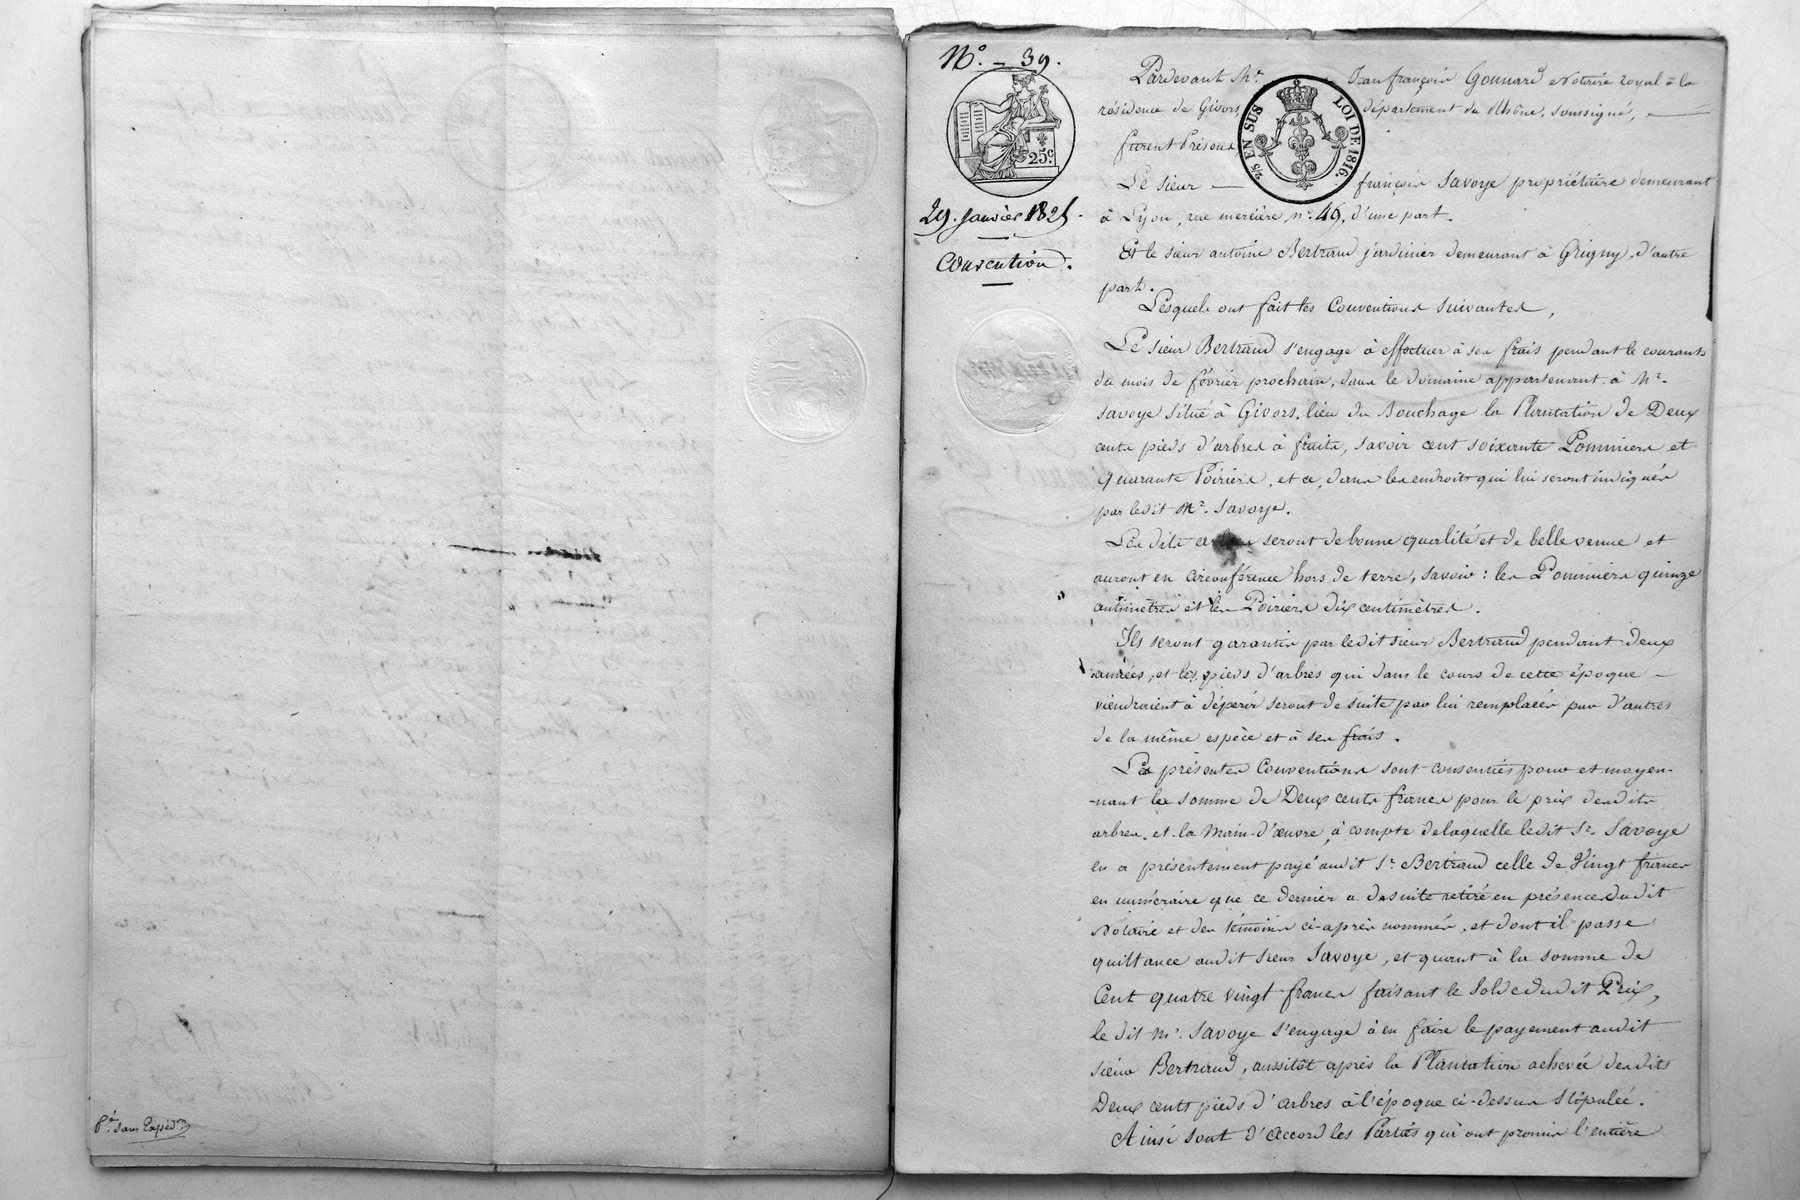 Pr. sans Expéd.on
N.° - 39.
25.c
29. janvier 1825.
Convention.
2/5 EN SUS
LOI DE 1816.
Pardevant M.e Jean françois Gonnard Notaire royal à la
résidence de Givors, département du Rhône, soussigné,
furent Présens
Le sieur françois Savoye propriétaire demeurant
à Lyon, rue mercière, n.° 49, d'une part.
Et le sieur antoine Bertrand jardinier demeurant à Grigny, d'autre
part.
Lesquels ont fait les Conventions suivantes,
Le sieur Bertrand s'engage à effectuer à ses frais pendant le courant
du mois de février prochain, dans le domaine appartenant à M.r
Savoye situé à Givors, lieu du Bouchage la Plantation de Deux
cents pieds d'arbres à fruits, savoir cent soixante Pommiers et
quarante Poiriers, et ce, dans les endroits qui lui seront indiqués
par ledit M.r Savoye.
Les dits arbres seront de bonne qualité et de belle venue et
auront en circonférence hors de terre, savoir : les Pommiers quinze
centimètres et les Poiriers dix centimètres.
Ils seront garantis par ledit sieur Bertrand pendant deux
années, et les pieds d'arbres qui dans le cours de cette époque
viendraient à dépérir seront de suite par lui remplacés par d'autres
de la même espèce et à ses frais.
Les présentes Conventions sont consenties pour et moyen-
-nant la somme de Deux cents francs pour le prix desdits
arbres et la main-d'œuvre, à compte de laquelle ledit S.r Savoye
en a présentement payé audit S.r Bertrand celle de Vingt francs
en numéraire que ce dernier a de suite retiré en présence dudit
Notaire et des témoins ci-après nommés, et dont il passe
quittance audit sieur Savoye, et quant à la somme de
Cent quatre vingt francs faisant le Solde dudit Prix,
le dit M.r Savoye s'engage à en faire le payement audit
sieur Bertrand, aussitôt après la Plantation achevée desdits
Deux cents pieds d'arbres à l'époque ci-dessus stipulée.
Ainsi sont d'accord les Parties qui ont promis l'entière